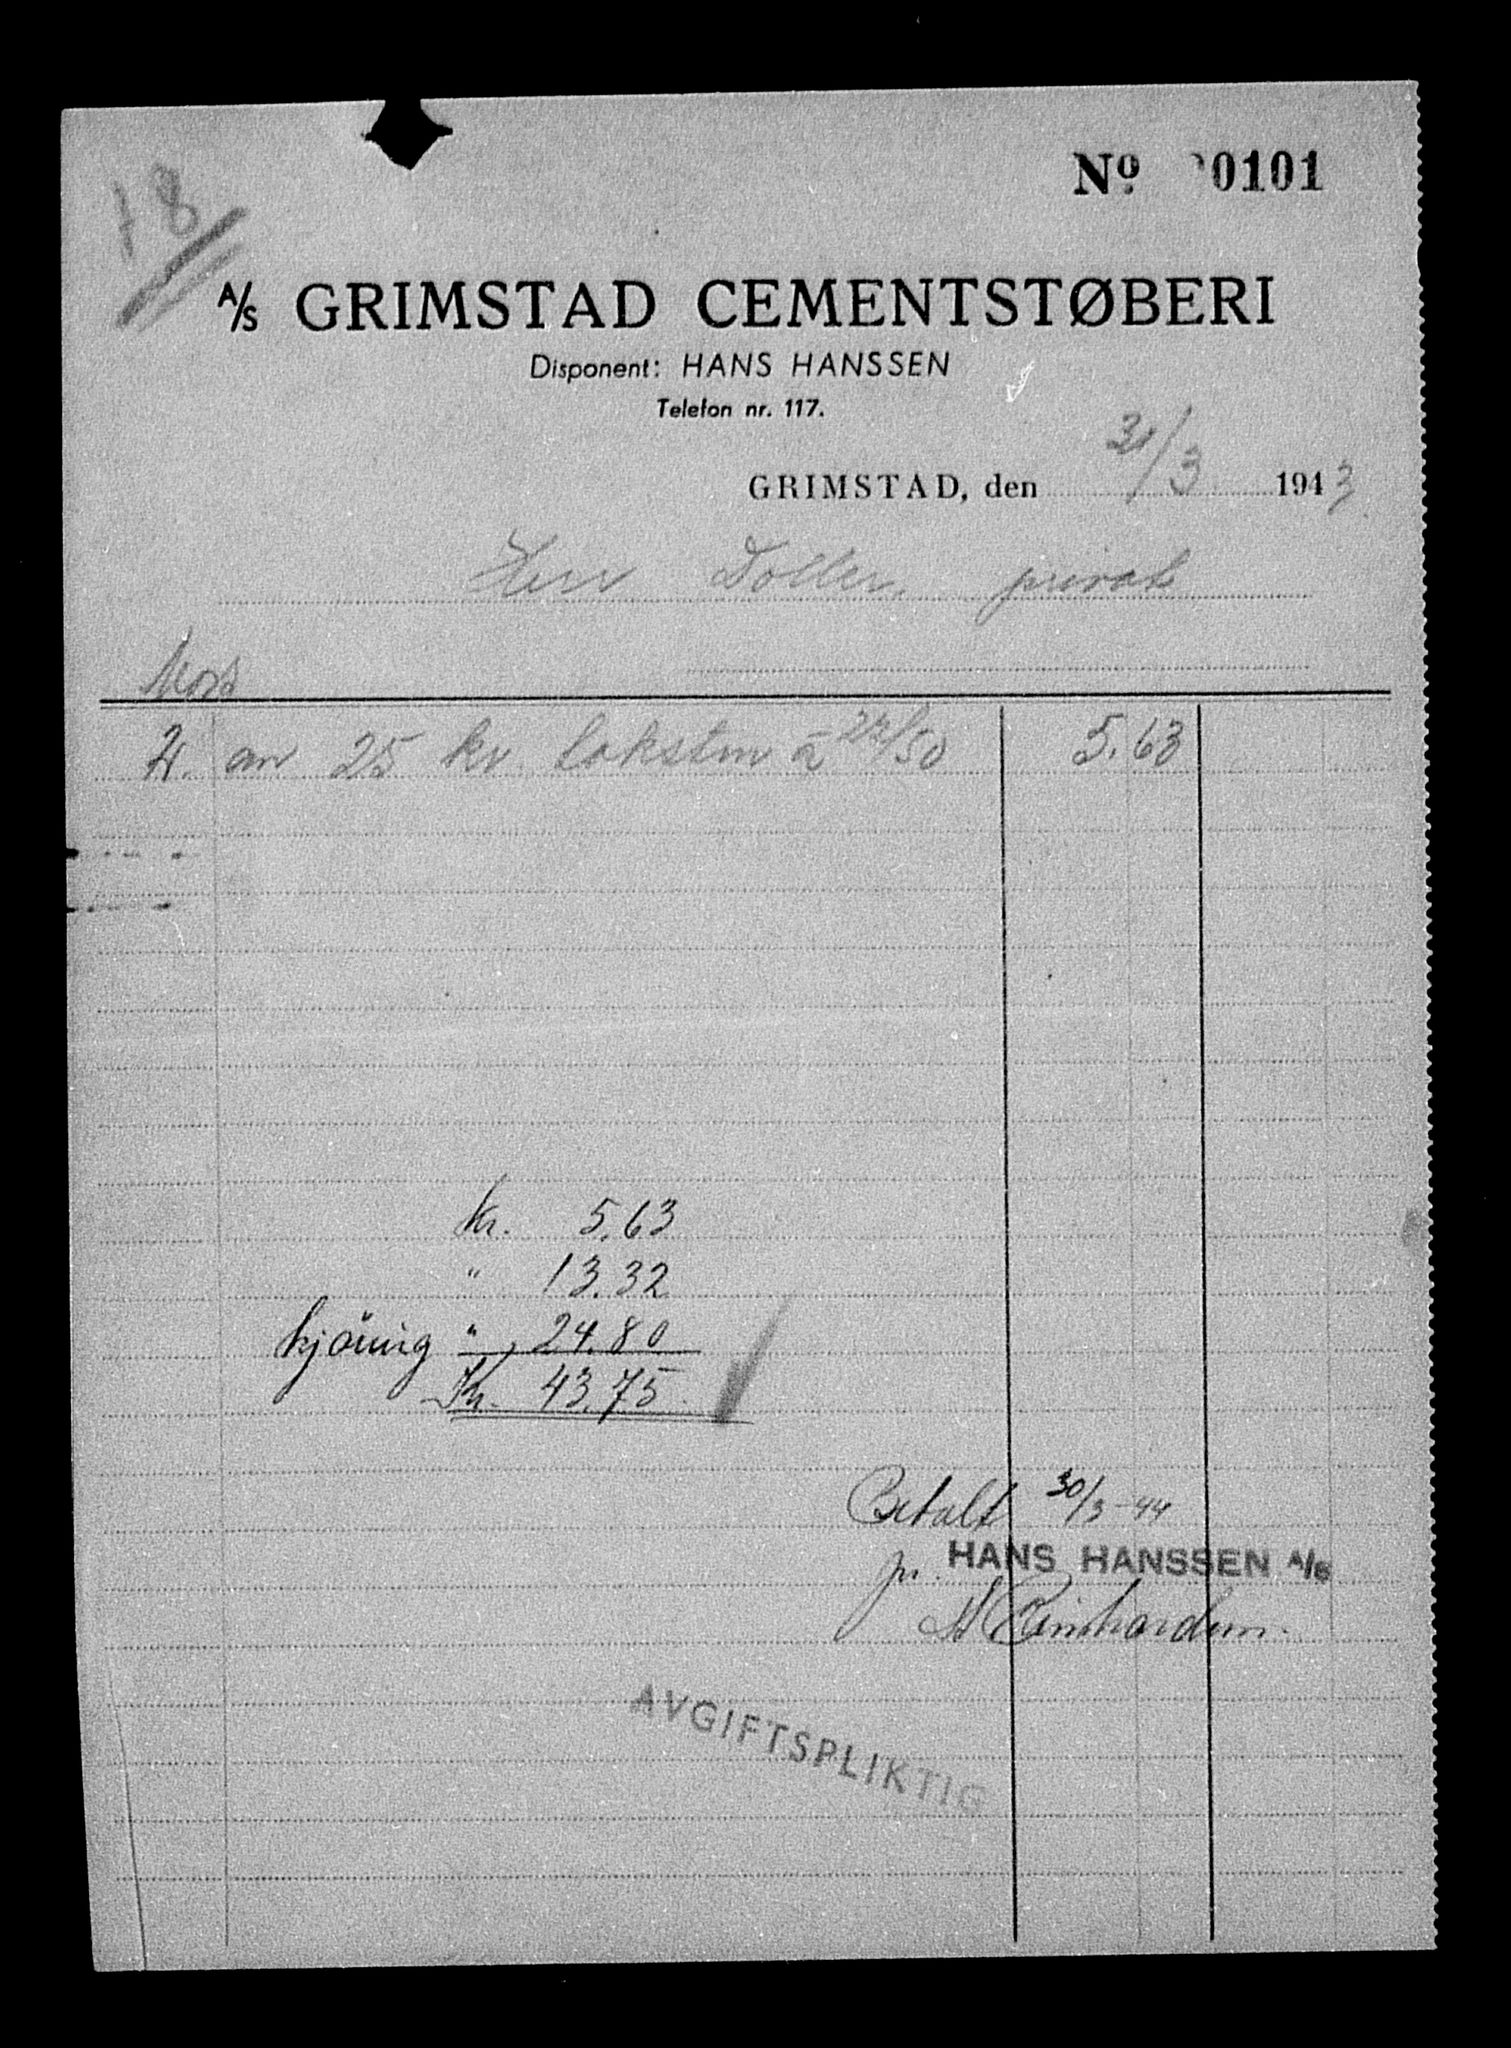 18
Nº 0101
A/S GRIMSTAD CEMENTSTØBERI
Disponent: HANS HANSSEN
Telefon nr. 117.
GRIMSTAD, den 31/3 1943
Herr Doller. privat
Mars
21. an 25 kv. takstein à 22/50 5.63
Kr. 5.63
" 13.32
kjöring " 24.80
Kr. 43.75
Betalt 30/3-44
pr. HANS HANSSEN A/S
AVGIFTSPLIKTIG